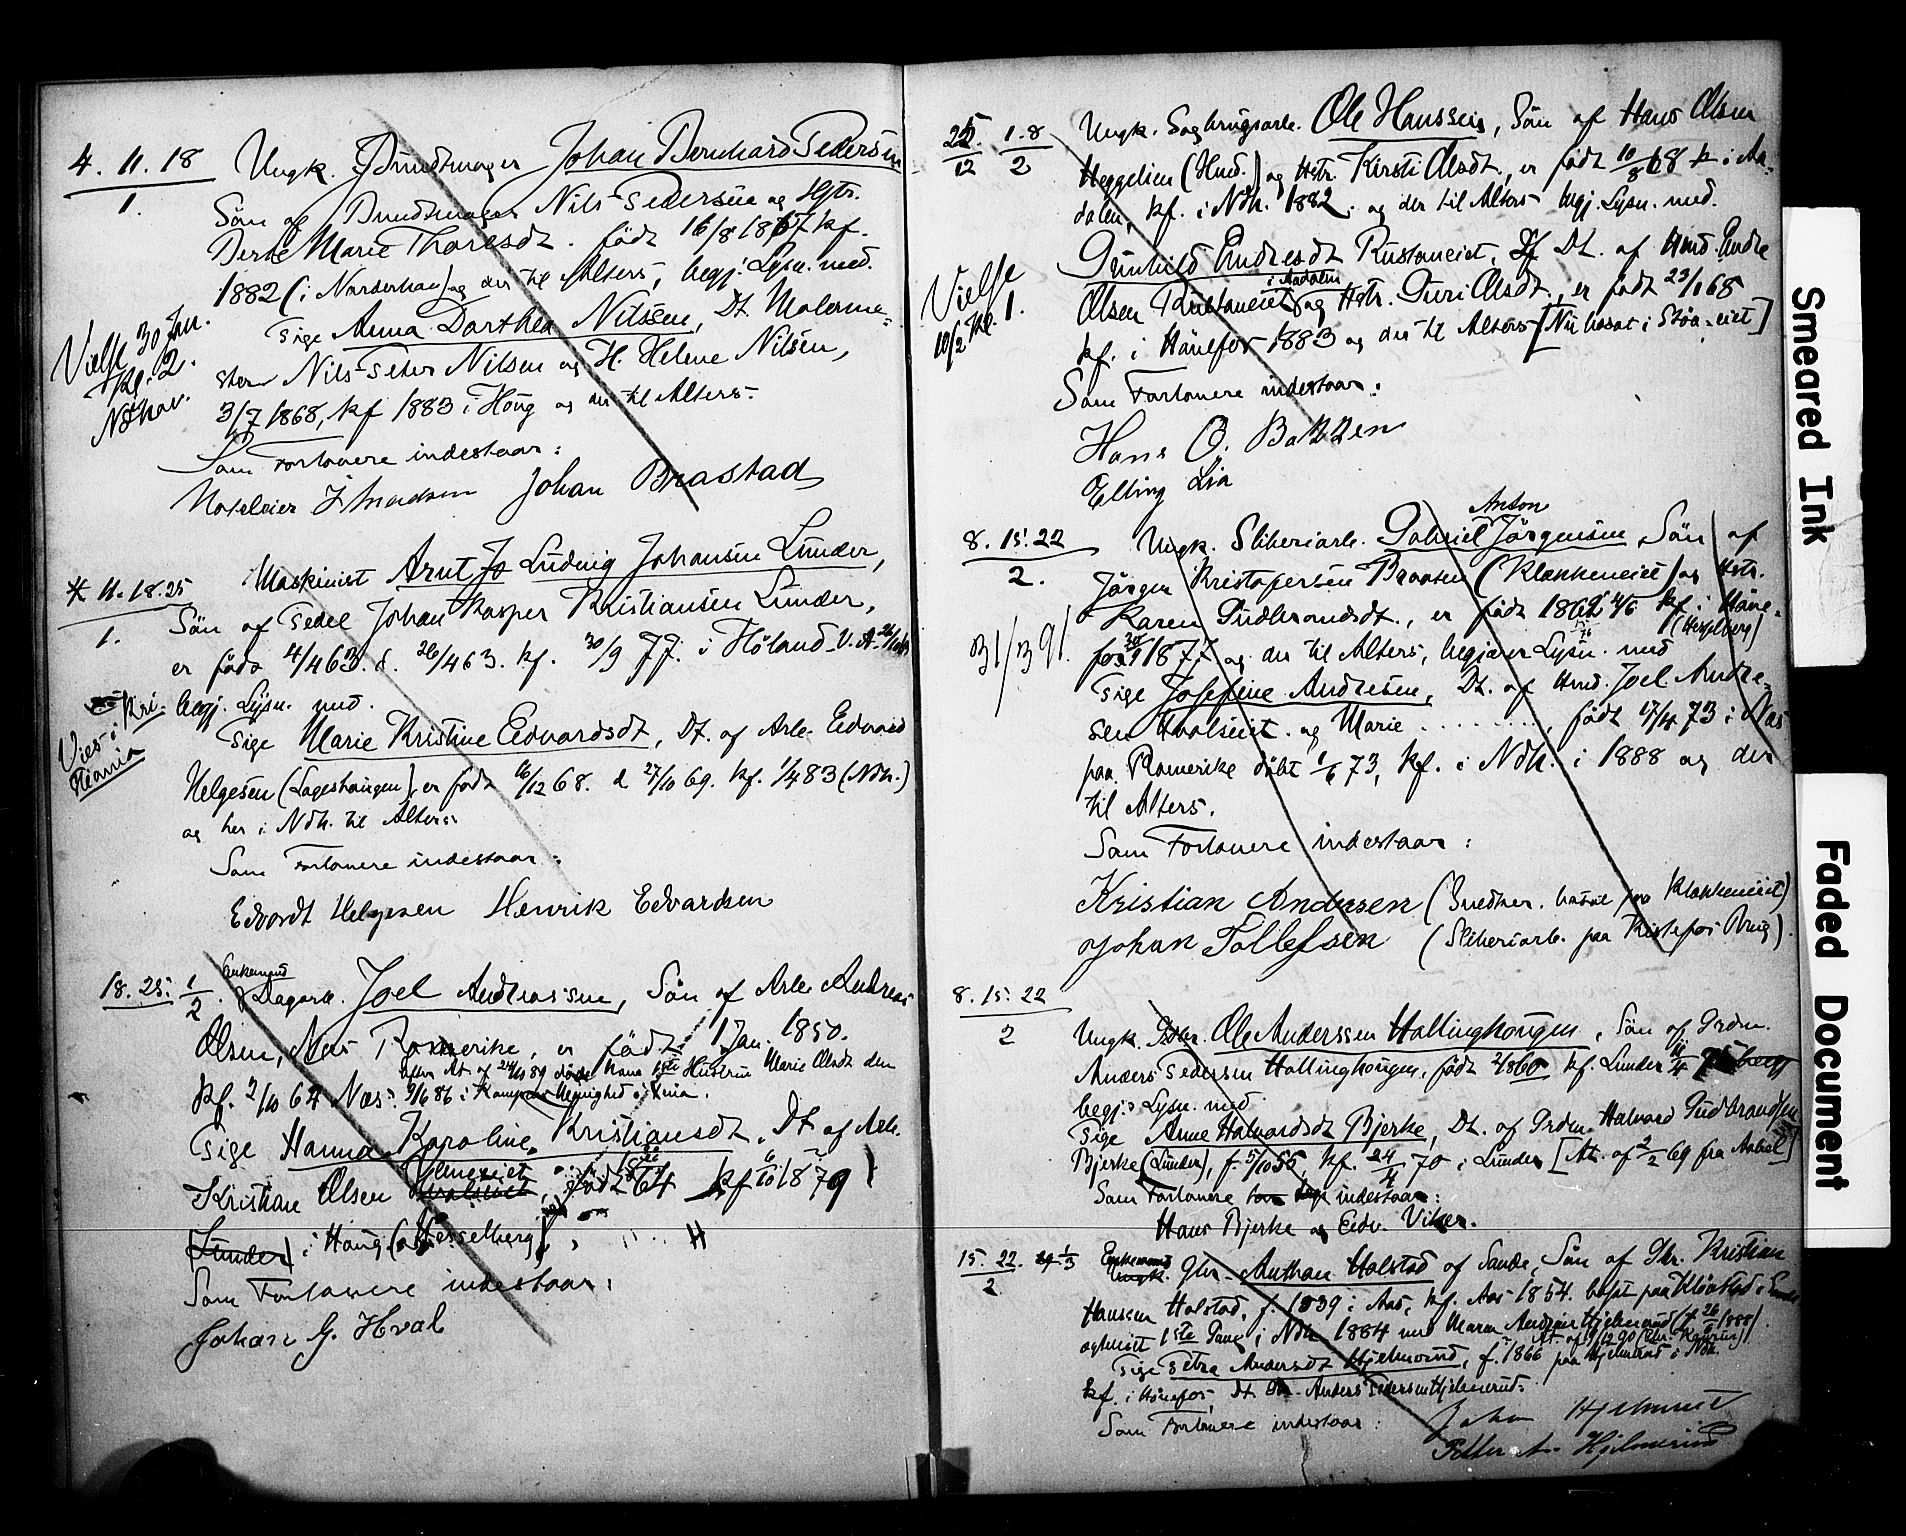 4. 11. 18
1.
Ungk. Bundtmager Johan Bernhard Pedersen
Søn af Bundtmager Nils Pedersen og Hstr.
Berte Marie Thoresdt. født 16/8 1867 kf.
1882 (i Norderhov) og der til Alters, begj. Lysn. med.
Vielse 30 Jan.
Kl. 2.
Ndhov.
Pige Anna Dorthea Nilssen, Dt. Malerme-
ster Nils Peter Nilsen og H. Helene Nilsen,
3/7 1868, kf 1883 i Houg og der til Alters.
Som Forlovere indestaar:
Hoteleier Johan Brastad
11. 18. 25
1.
Maskinist Arnt Jo Ludvig Johansen Lunder,
Søn af Pedel Johan Kasper Kristiansen Lunder,
er født 4/4 63 d. 26/4 63. kf. 30/9 77. i Høland V. A.
Vies i Kri-
stiania
begj. Lysn. med.
Pige Marie Kristine Edvardsdt, Dt. af Arb. Edvard
Helgesen (Lageshaugen), er født 16/12 68. d 27/10 69. kf. 1/4 83 (Ndh.)
og her i Ndh. til Alters.
Som Forlovere indestaar:
Edvardt Helgesen Henrik Edvardsen
18. 25. 1
2.
Enkemand
Dagarb. Joel Andreassen, Søn af Arb. Andreas
Olsen, Næs Romerike, er født 1 Jan. 1850.
efter At. af 24/11 89 døde hans 1ste Hustru Marie Olsdt den
kf. 2/10 64 Næs. 9/6 86 i Kampens Menighed i Xnia.
Pige Hanna Karoline Kristiansdt, Dt af Arb.
Kristian Olsen Hvalseiet, født 64 kf 1879
(Lunder) i Houg (Hesselberg)
Som Forlovere indestaar:
Johan G. Hval
25 1. 8
12 2
Ungk. Sagbrugsarb. Ole Hanssen, Søn af Hans Olsen
Heggelien (Hmd.) og Hstr. Kirsti Olsdt., er født 10/8 68 i Aa-
dalen, kf. i Ndh. 1882. og der til Alters begj. Lysn. med.
Vielse
10/2 Kl. 1.
Gunhild Endresdt Rustaneiet, Dt. af Hmd. Endre
i Aadalen
Olsen Rustaneiet og Hstr. Guri Olsdt., er født 23/1 68
kf. i Hønefos 1883 og der til Alters [Nu bosat i Støa-eiet]
Som Forlovere indestaar:
Hans O. Bakken
Elling Lia
8. 15. 22
2.
Anton
Ungk. Sliberiarb. Gabriel Jørgensen Søn af
Jørgen Kristofersen Braaten (Klækkeneiet) og Hstr.
Karen Gudbrandsdt., er født 1862 kf. i Høne-
(Hesselberg)
fos 1877 og der til Alters, begjærer Lysn. med
31/3 91.
Pige Josefine Andresen, Dt. af Hmd. Joel Andre-
sen Hvalseiet. og Marie ........., født 17/4 73 i Næs
paa Romerike døbt 1/6 73, kf. i Ndh. i 1888 og der
til Alters.
Som Forlovere indestaar:
Kristian Andersen (Snedker. bosat paa Klækkeneiet)
Johan Tollefsen (Sliberiarb. paa Kistefos Brug).
8. 15. 22
2
Ungk. Ole Anderssen Hallinghougen, Søn af Grdm.
Anders Pedersen Hallinghougen, født 2/8 60 kf. Lunder
begj. Lysn. med
Pige Anne Halvardsdt Bjerke, Dt. af Grdm. Halvard Gudbrandsen
Bjerke (Lunder), f. 5/10 55, kf. 24/4 70 i Lunder [At. af 2/2 69 fra Aadal]
Som Forlovere indestaar:
Hans Bjerke og Edv. Viker.
15. 22. 29 1/3
2
Enkemand
Ungk. Gbr. Anthan Holstad af Sande, Søn af Gbr. Kristian
Hansen Holstad, f. 1839 i Aas, kf. Aas 1854. bosat paa i Sande
1ste Gang i Ndh 1884 med Maren Andersdt Hjelmerud († 26/6 1888)
Pige Petra Andersdt Hjelmerud, f. 1866 paa Hjelmerud i Ndh.
kf. i Hønefos, Dt. Gbr. Anders Pedersen Hjelmerud.
Som Forlovere indestaar:
Johan Hjelmerud
Petter A. Hjelmerud
Smeared Ink
Faded Document